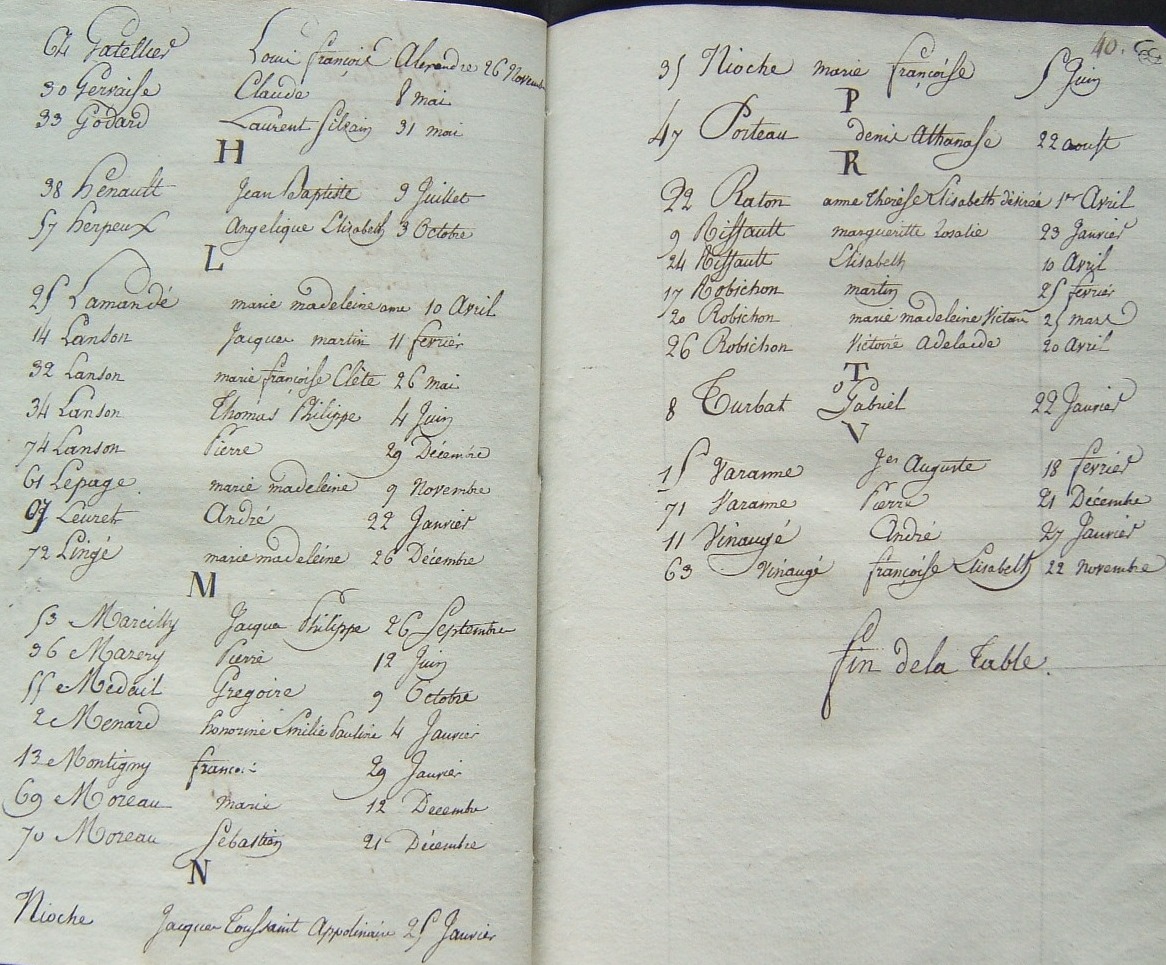 64 Gatellier Louis françois Alexandre 26 Novembre
30 Gervaise Claude 8 mai
33 Godard Laurent Silvain 31 mai
H
38 henault Jean Baptiste 9 Juillet
57 herpeux Angelique Elisabeth 3 Octobre
L
25 Lamandé marie madeleine anne 10 Avril
14 Lanson Jacques martin 11 fevrier
32 Lanson marie françoise Clète 26 mai
34 Lanson Thomas Philippe 4 Juin
74 Lanson Pierre 29 Décembre
61 Lepage marie madeleine 9 Novembre
Leuret André 22 Janvier
72 Lingé marie madeleine 26 Décembre
M
53 Marcilly Jacques Philippe 26 Septembre
36 Mazery Pierre 12 Juin
55 Medail Gregoire 9 Octobre
2 Menard honorine Emilie Pauline 4 Janvier
13 Montigny françois 29 Janvier
69 Moreau marie 12 Decembre
70 Moreau Sebastien 21 Décembre
N
Nioche Jacques Toussaint Appolinaire 25 Janvier
40.
35 Nioche marie françoise 5 Juin
P
47 Poiteau denis Athanase 22 aoust
R
22 Raton anne Thérèse Elisabeth désirée 1er Avril
9 Riffault margueritte Rosalie 23 Janvier
24 Riffault Elisabeth 10 Avril
17 Robichon martin 25 fevrier
20 Robichon marie madeleine Victoire 25 mars
26 Robichon Victoire Adelaide 20 Avril
T
8 Turbat Gabriel 22 Janvier
V
15 Varanne Jes Auguste 18 fevrier
71 Varanne Pierre 21 Décembre
11 Vinaugé André 27 Janvier
63 Vinaugé françoise Elisabeth 22 novembre
fin de la Table.